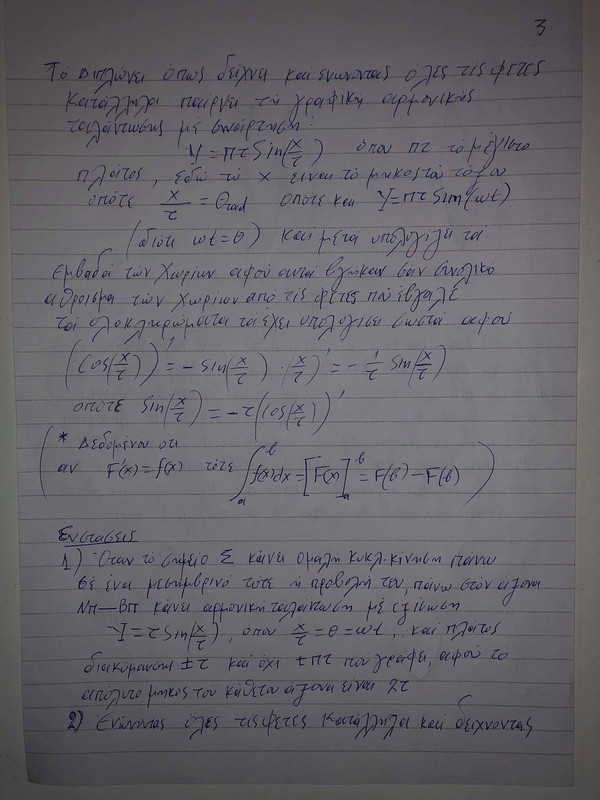 3
Τό διπλώνει όπως δείχνει και ενώνοντας όλες τις φέτες
κατάλληλα παίρνει τη γραφική αρμονικής
ταλάντωσης με συνάρτηση:
y = πτ sin(x/τ) όπου πτ το μέγιστο
πλάτος, εδώ το x είναι το μήκος του τόξου
οπότε x/τ = θrad οποτε και y=πτ sin(ωt)
(διότι ωt=θ) και μετά υπολογίζει τα
εμβαδά των χωρίων αφού αυτά βγήκαν σαν συνολικο
αθροισμα των χωρίων από τις φέτες που έβγαλε
τα ολοκληρώματα τα έχει υπολογισει σωστά αφού
(cos(x/τ))' = -sin(x/τ)·(x/τ)' = -1/τ sin(x/τ)
οποτε sin(x/τ) = -τ(cos(x/τ))'
(* Δεδομένου οτι
αν F'(x)=f(x) τότε ∫ₐᵇ f(x)dx = [F(x)]ₐᵇ = F(b) - F(b) )
Ενστάσεις
1) Όταν το σημείο Σ κάνει ομαλή κυκλ. κίνηση πάνω
σε ένα μεσημβρινό τότε η προβολή του, πάνω στόν άξονα
ΝΠ—ΒΠ κάνει αρμονική ταλάντωση με εξίσωση
y=τ sin(x/τ), όπου x/τ = θ = ωt, και πλάτος
διακύμανση ±τ και όχι ±πτ που γράφει, αφού το
απόλυτο μήκος του κάθετου άξονα είναι 2τ
2) Ενώνοντας όλες τις φέτες κατάλληλα και δείχνοντας